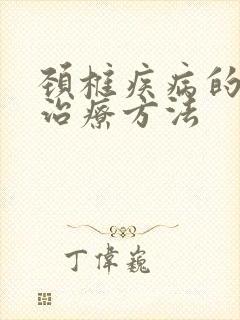 頚椎疾病的
治療方法
丁偉巍